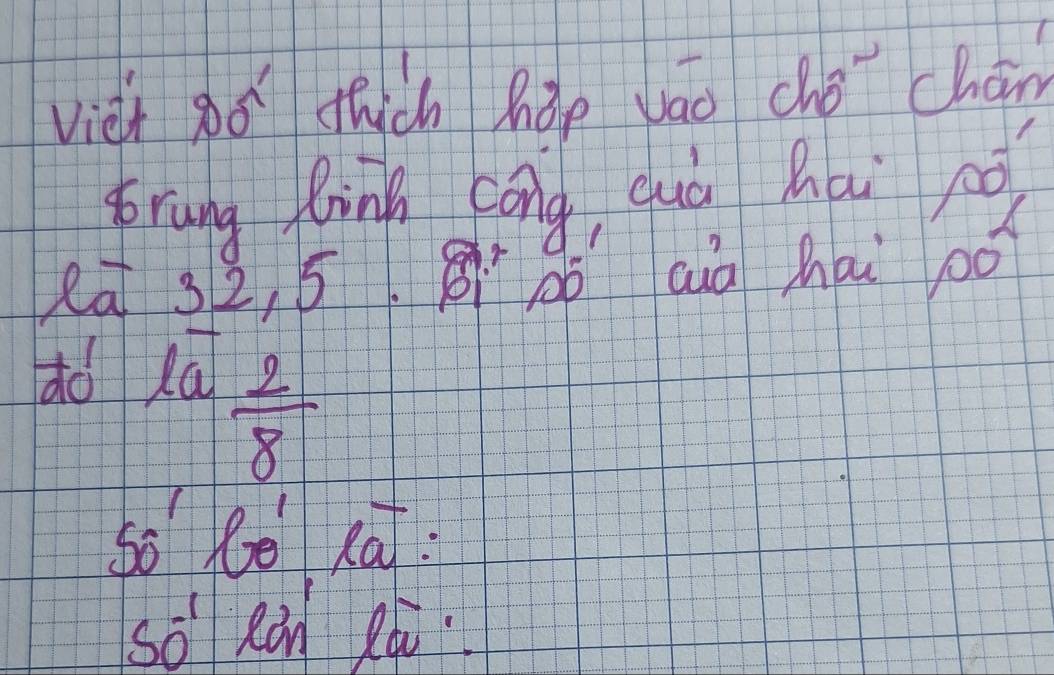 Viết số thích hợp vào chỗ chấm
trung bình cộng của hai số
là 32,5. Tỉ số của hai số
đó là 2/8
Số bé là:
Số lớn là: